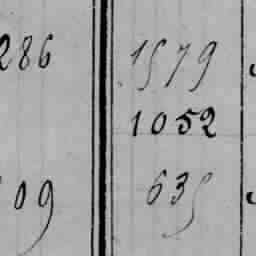 286 1579
1052
09 635